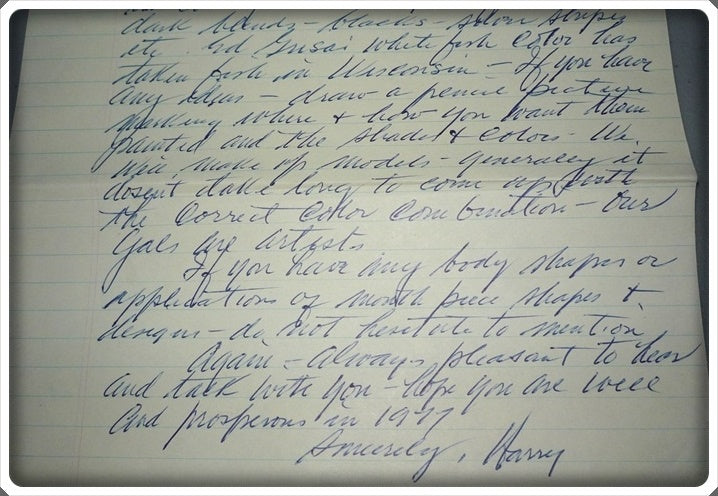 dark blends - blacks - silver stripes
etc. white fish color has
taken fish in Wisconsin - If you have
any ideas - draw a pencil picture
marking where & how you want them
painted and the shades & colors - We
will make up models - generally it
doesn't take long to come up with
the correct color combination - Our
gals are artists
If you have any body shapes or
applications of mouth piece shapes &
designs - do not hesitate to mention
Again - always pleasant to hear
and talk with you - hope you are well
and prosperous in 1977
Sincerely, Harry